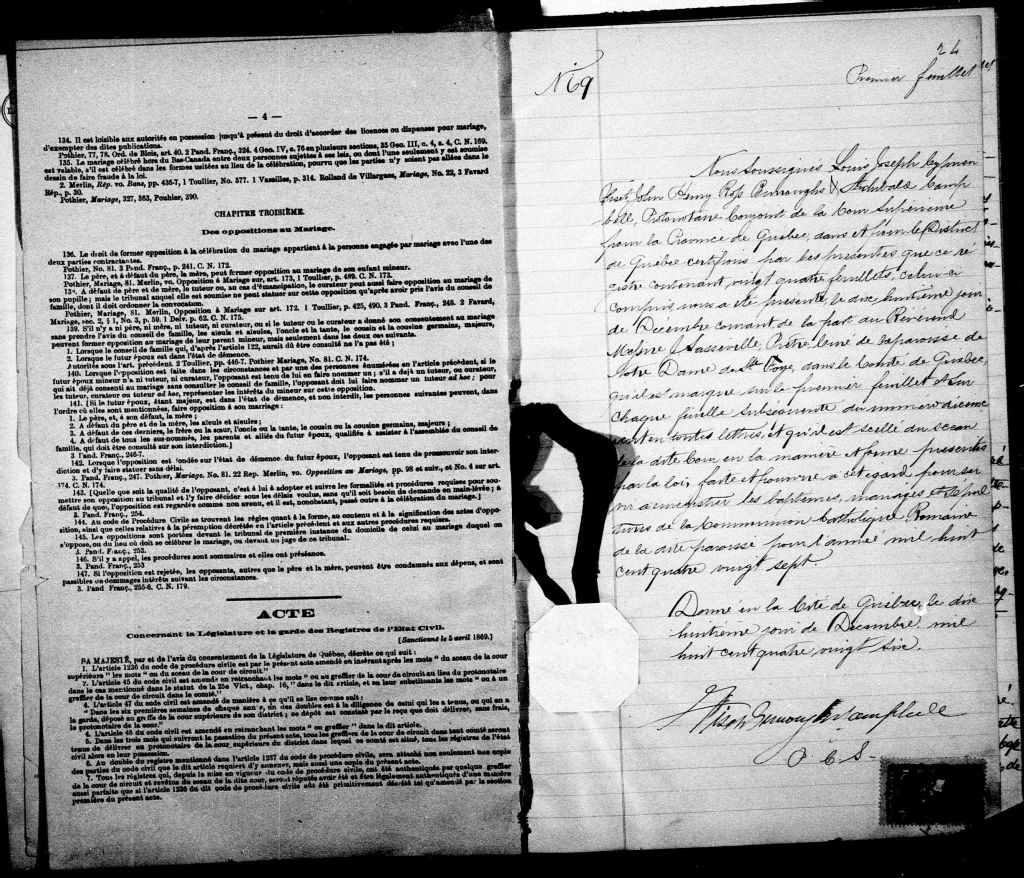 — 4 —
134. Il est loisible aux autorités en possession jusqu'à présent du droit d'accorder des licences ou dispenses pour mariage,
d'exempter des dites publications.
Pothier, 77, 78. Ord. de Blois, art. 40. 2 Pand. Franç., 324. 4 Geo. IV, c. 76 en plusieurs sections, 35 Geo. III, c. 4, s. 4, C. N. 169.
135. Le mariage célébré hors du Bas-Canada entre deux personnes sujettes à ses lois, ou dont l'une seulement y est soumise
est valable, s'il est célébré dans les formes usitées au lieu de la célébration, pourvu que les parties n'y soient pas allées dans le
dessin de faire fraude à la loi.
2. Merlin, Rép. vo. Bans, pp. 436-7, 1 Toullier, No. 577. 1 Vazeilles, p. 314. Rolland de Villargues, Mariage, No. 22, 3 Favard
Rép., p. 30.
Pothier, Mariage, 327, 363, Pouhier, 390.
CHAPITRE TROISIÈME.
Des oppositions au Mariage.
136. Le droit de former opposition à la célébration du mariage appartient à la personne engagée par mariage avec l'une des
deux parties contractantes.
Pothier, No. 81. 3 Pand. Franç., p. 241. C. N. 172.
137. Le père, et à défaut du père, la mère, peut former opposition au mariage de son enfant mineur.
Pothier, Mariage, 81. Merlin, vo. Opposition à Mariage sur art. 173, 1 Toullier, p. 489. C. N. 173.
138. A défaut de père et de mère, le tuteur ou, au cas d'émancipation, le curateur peut aussi faire opposition au mariage de
son pupille; mais le tribunal auquel elle est soumise ne peut statuer sur cette opposition qu'après avoir pris l'avis du conseil de
famille, dont il doit ordonner la convocation.
Pothier, Mariage, 81. Merlin, Opposition à Mariage sur art. 172. 1 Toullier, p. 425, 490. 3 Pand. Franç., 248. 2 Favard,
Mariage, sec. 2, § 1, No. 3, p. 59. 1 Delv. p. 62. C. N. 175.
139. S'il n'y a ni père, ni mère, ni tuteur, ni curateur, ou si le tuteur ou le curateur a donné son consentement au mariage
sans prendre l'avis du conseil de famille, les aïeuls et aïeules, l'oncle et la tante, le cousin et la cousine germains, majeurs,
peuvent former opposition au mariage de leur parent mineur, mais seulement dans les deux cas suivants.
1. Lorsque le conseil de famille qui, d'après l'article 122, aurait dû être consulté ne l'a pas été;
2. Lorsque le futur époux est dans l'état de démence.
Autorités sous l'art. précédent. 2 Toullier, pp. 446-7. Pothier Mariage, No. 81. C. N. 174.
140. Lorsque l'opposition est faite dans les circonstances et par une des personnes énumérées en l'article précédent, si le
futur époux mineur n'a ni tuteur, ni curateur, l'opposant est tenu de lui en faire nommer un; s'il a déjà un tuteur, ou curateur,
qui ait déjà consenti au mariage sans consulter le conseil de famille, l'opposant doit lui faire nommer un tuteur ad hoc; pour
les tuteur, curateur ou tuteur ad hoc, représenter les intérêts du mineur sur cette opposition.
141. [Si le futur époux, étant majeur, est dans l'état de démence, et non interdit, les personnes suivantes peuvent, dans
l'ordre où elles sont mentionnées, faire opposition à son mariage:
1. Le père, et, à son défaut, la mère;
2. A défaut du père et de la mère, les aïeuls et aïeules;
3. A défaut de ces derniers, le frère ou la sœur, l'oncle ou la tante, le cousin ou la cousine germains, majeurs;
4. A défaut de tous les sus-nommés, les parents et alliés du futur époux, qualifiés à assister à l'assemblée du conseil de
famille, qui doit être consulté sur son interdiction.]
3 Pand. Franç., 246-7.
142. Lorsque l'opposition est fondée sur l'état de démence du futur époux, l'opposant est tenu de promouvoir son inter-
diction et d'y faire statuer sans délai.
3. Pand. Franç., 247. Pothier, Mariage, No. 81. 22 Rep. Merlin, vo. Opposition au Mariage, pp. 98 et suiv., et No. 4 sur art.
174. C. N. 174.
143. [Quelle que soit la qualité de l'opposant, c'est à lui à adopter et suivre les formalités et procédures requises pour sou-
mettre son opposition au tribunal et l'y faire décider sous les délais voulus, sans qu'il soit besoin de demande en main-levée; à
défaut de quoi, l'opposition est regardée comme non avenu, et il est, nonobstant, passé outre à la célébration du mariage.]
3. Pand. Franç., 254.
144. Au code de Procédure Civile se trouvent les règles quant à la forme, au contenu et à la signification des actes d'oppo-
sition, ainsi que celles relatives à la péremption décrétée en l'article précédent et aux autres procédures requises.
145. Les oppositions sont portées devant le tribunal de première instance du domicile de celui au mariage duquel on
s'oppose, ou du lieu où doit se célébrer le mariage, ou devant un juge de ce tribunal.
3. Pand. Franç., 253.
146. S'il y a appel, les procédures sont sommaires et elles ont préséance.
3. Pand. Franç., 253
147. Si l'opposition est rejetée, les opposants, autres que le père et la mère, peuvent être condamnés aux dépens, et sont
passibles de dommages intérêts suivant les circonstances.
3. Pand. Franç., 255-6. C. N. 179.
ACTE
Concernant la Législature et la garde des Registres de l'Etat Civil.
[Sanctionné le 5 avril 1869.]
SA MAJESTÉ, par et de l'avis du consentement de la Législature de Québec, décrète ce qui suit:
1. L'article 1236 du code de procédure civile est par le présent acte amendé en insérant après les mots "du sceau de la cour
supérieure" les mots "ou du sceau de la cour de circuit."
2. L'article 45 du code civil est amendé en retranchant les mots "ou au greffier de la cour de circuit au lieu du protonotaire
dans le cas mentionné dans le statut de la 25e Vict., chap. 16," dans le dit article, et en leur substituant les mots "ou à un
greffier de la cour de circuit dans le comté."
4. L'article 47 du code civil est amendé de manière à ce qu'il se lise comme suit:
"Dans les six premières semaines de chaque année, un des doubles est à la diligence de celui qui les a tenus, ou qui en a
la garde, déposé au greffe de la cour supérieure de son district; ce dépôt est constaté par le reçu que doit délivrer, sans frais,
le protonotaire de la cour."
4. L'article 48 du code civil est amendé en retranchant les mots "ou greffier" dans le dit article.
5. Dans les trois mois qui suivront la passation du présent acte, tous les greffiers de la cour de circuit dans tout comté seront
tenus de délivrer au protonotaire de la cour supérieure du district dans lequel ce comté est situé, tous les registres de l'état
civil alors en leur possession.
6. Au double du registre mentionné dans l'article 1237 du code de procédure civile, sera attaché non seulement une copie
des parties du code civil que le dit article requiert d'y annexer, mais aussi une copie du présent acte.
7. Tous les registres qui, depuis la mise en vigueur du code de procédure civile, ont été authentiqués par quelque greffier
de la cour de circuit et revêtus du sceau de la dite cour, seront réputés avoir été et être légalement authentiqués d'une manière
aussi parfaite que si l'article 1236 du dit code de procédure civile eût été primitivement décrété tel qu'amendé par la section
première du présent acte.
24
No 69
Premier feuillet
Nous Soussignés Louis Joseph Cyprien
Fiset, John Henry Ross Burroughs & Archibald Camp
bell, Protonotaire Conjoint de la Cour Supérieure
pour la Province de Québec, dans et pour le District
de Québec certifions par les présentes que ce ré
gistre contenant vingt quatre feuillets, celui-ci
compris, nous a été présenté le dix huitième jour
de Décembre courant de la part du Révérend
Messire J Sasseville, Prêtre, Curé de la paroisse de
Notre Dame de Ste Foye, dans le Comté de Québec,
qu'il est marqué sur le premier feuillet et sur
chaque feuille subséquente du numéro d'icelui
écrit en toutes lettres, et qu'il est scellé du sceau
de la dite Cour en la manière et forme prescrites
par la loi, faite et pourvue à cet égard, pour ser
vir à enregistrer les baptêmes, mariages et sépul
tures de la Communion Catholique Romaine
de la dite paroisse pour l'année mil huit
cent quatre vingt sept.
Donné en la Cité de Québec, le dix
huitième jour de Décembre, mil
huit cent quatre vingt six.
Fiset Burroughs & Campbell
P. C. S.